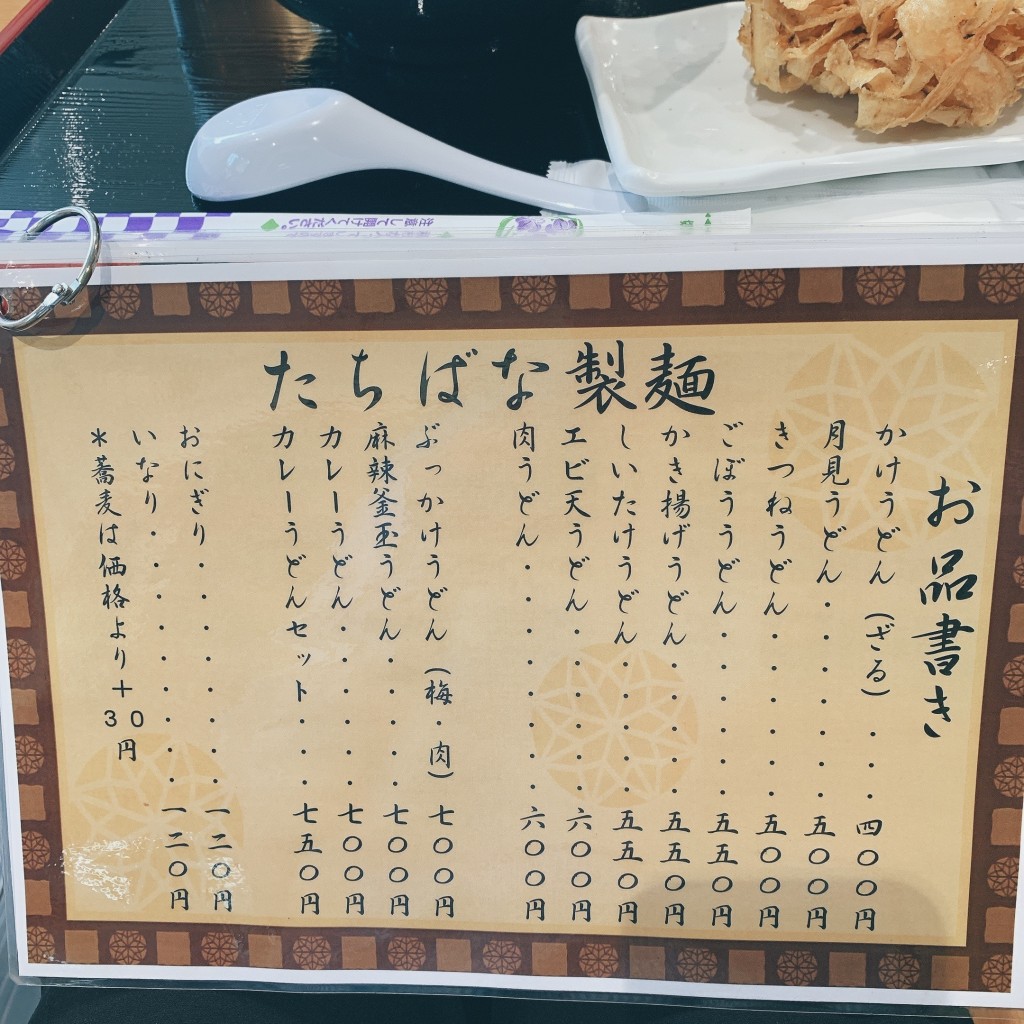 たちばな製麺
お品書き
かけうどん(ざる)・・・四〇〇円
月見うどん・・・・・・五〇〇円
きつねうどん・・・・・五〇〇円
ごぼううどん・・・・・五五〇円
かき揚げうどん・・・・五五〇円
しいたけうどん・・・・五五〇円
エビ天うどん・・・・・六〇〇円
肉うどん・・・・・・・六〇〇円
ぶっかけうどん(梅・肉)七〇〇円
麻辣釜玉うどん・・・・七〇〇円
カレーうどん・・・・・七〇〇円
カレーうどんセット・・・七五〇円
おにぎり・・・・・・・一二〇円
いなり・・・・・・・・一二〇円
*蕎麦は価格より+30円